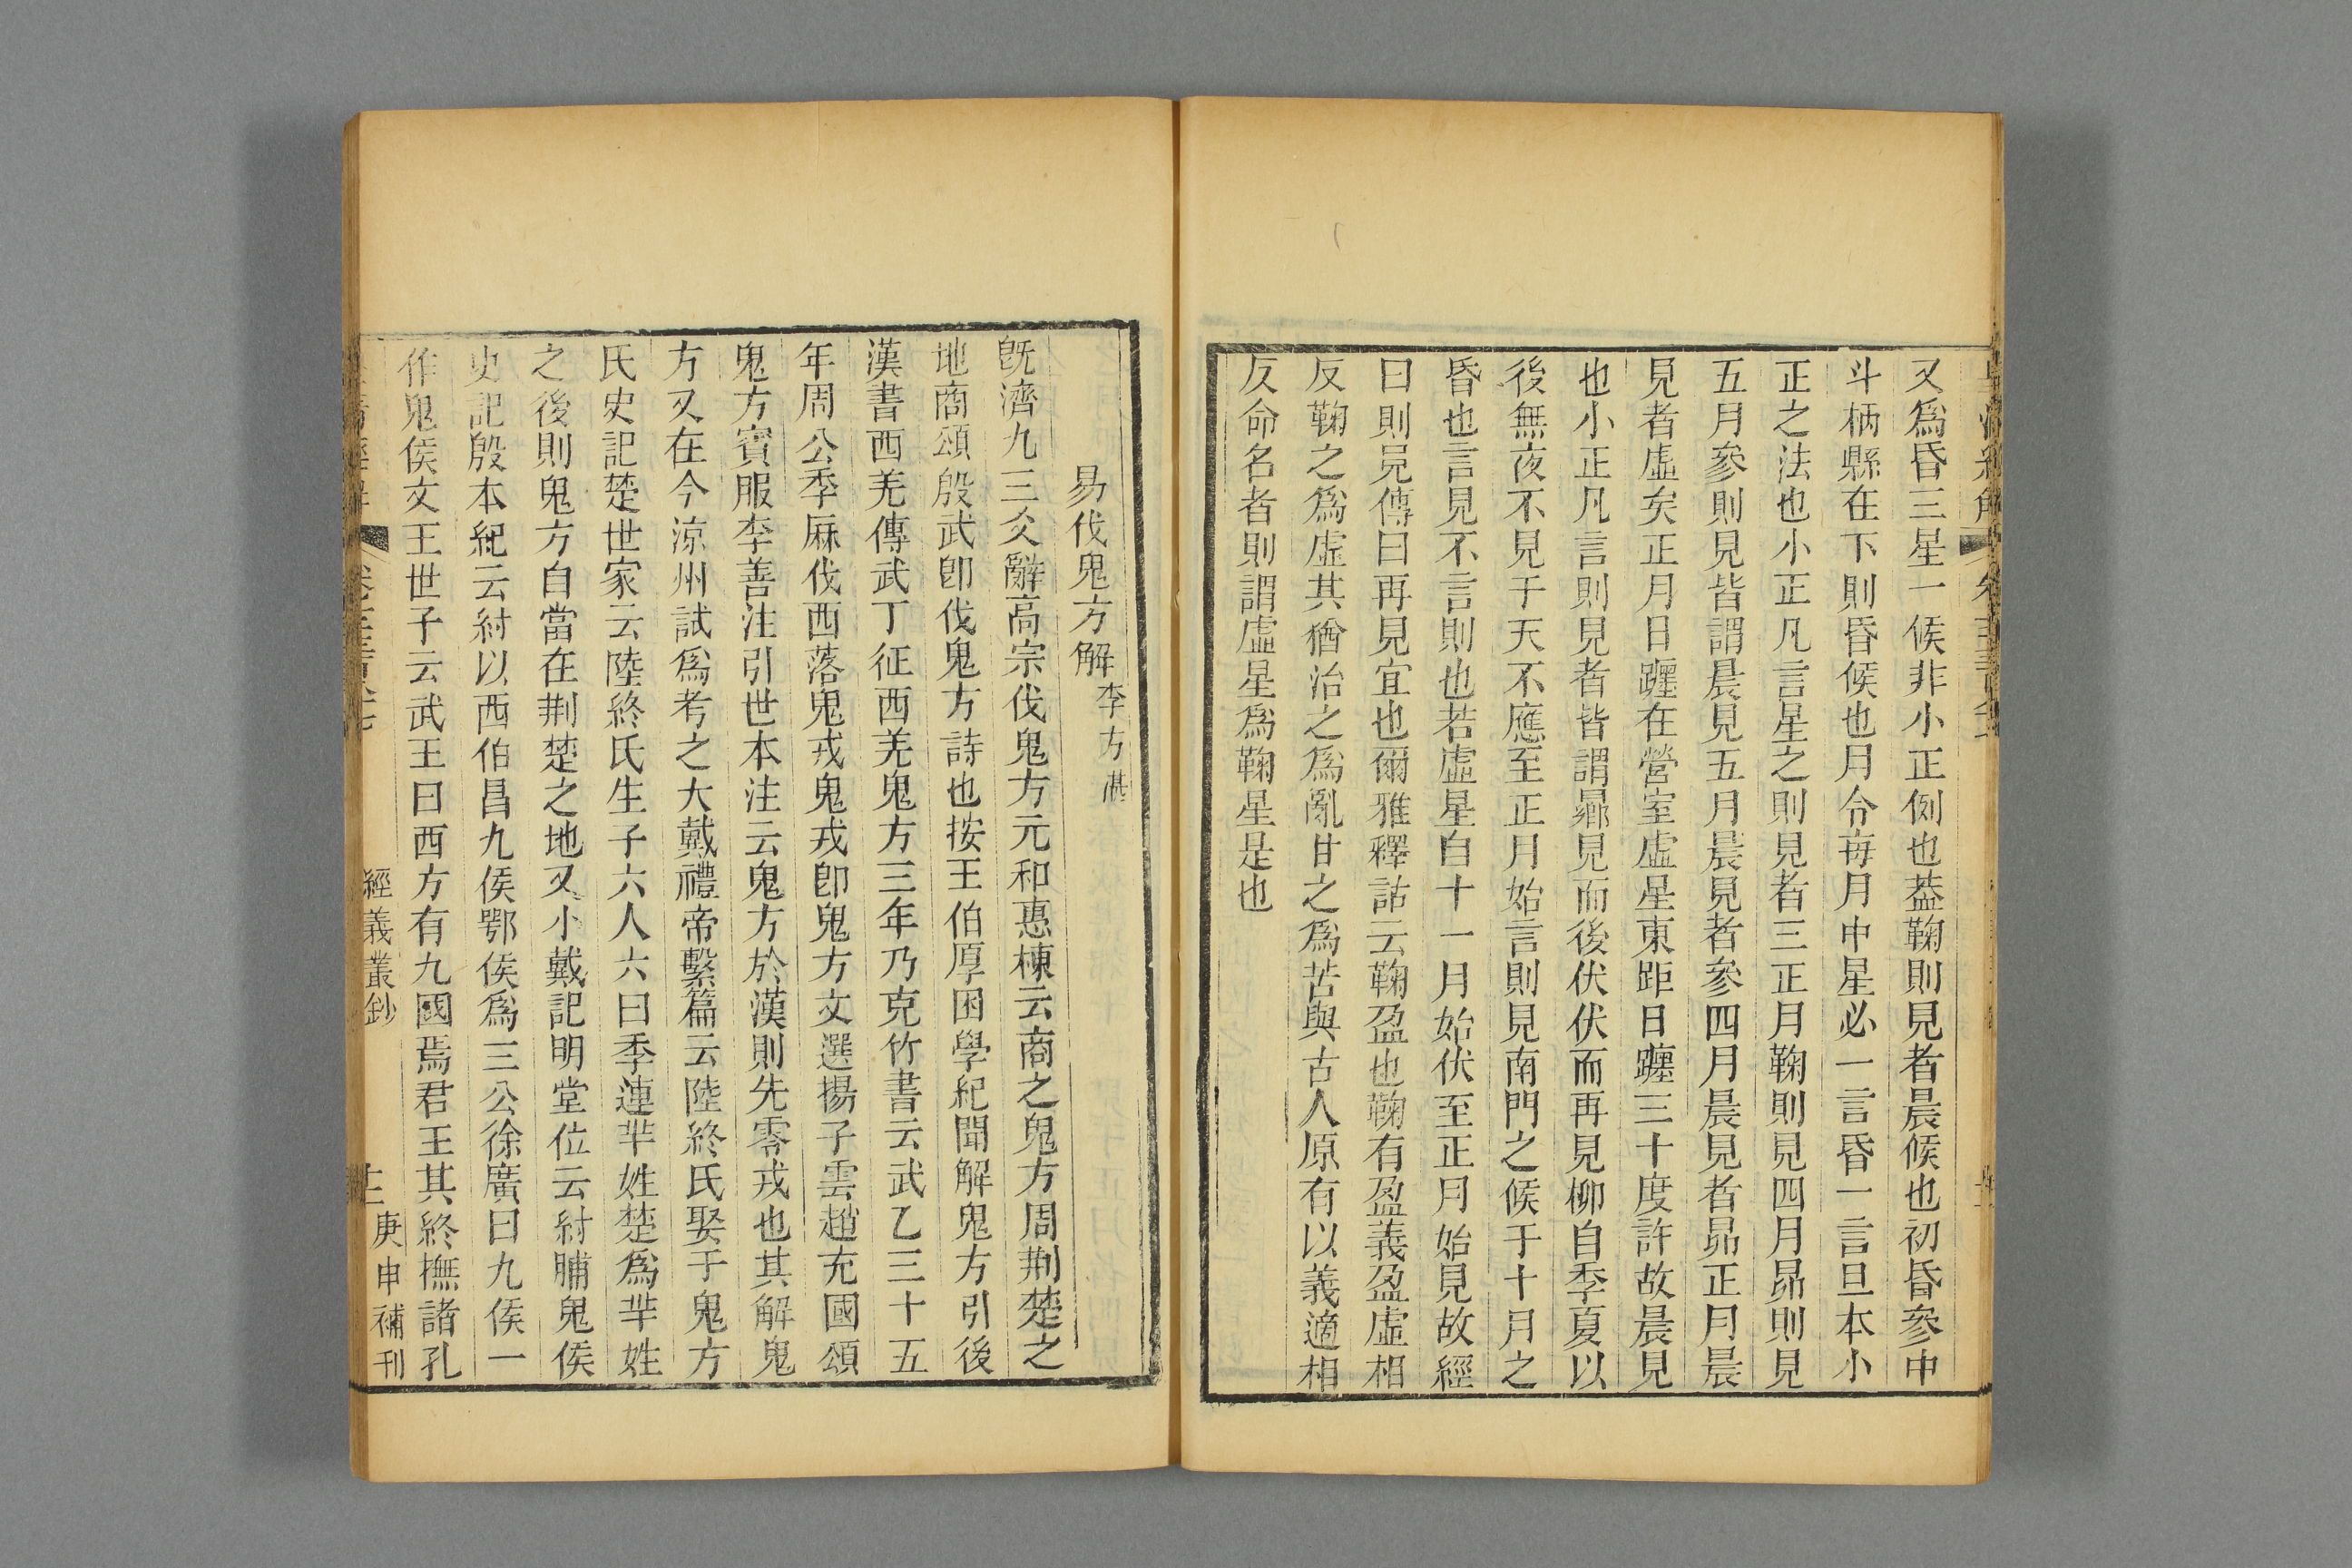 又爲昏三星一候非小正例也葢鞠則見者晨候也初昏參中
斗柄縣在下則昏候也月令每月中星必一言昏一言旦本小
正之法也小正凡言星之則見者三正月鞠則見四月昴則見
五月參則見皆謂晨見五月晨見者參四月晨見者昴正月晨
見者虛矣正月日躔在營室虛星東距日躔三十度許故晨見
也小正凡言則見者皆謂㬎見而後伏伏而再見柳自季夏以
後無夜不見于天不應至正月始言則見南門之候于十月之
昏也言見不言則也若虛星自十一月始伏至正月始見故經
曰則見傳曰再見宜也爾雅釋詁云鞠盈也鞠有盈義盈虛相
反鞠之爲虛其猶治之爲亂甘之爲苦與古人原有以義適相
反命名者則謂虛星爲鞠星是也
易伐鬼方解 李方湛
旣濟九三爻辭高宗伐鬼方元和惠棟云商之鬼方周荆楚之
地商頌殷武卽伐鬼方詩也按王伯厚困學紀聞解鬼方引後
漢書西羌傳武丁征西羌鬼方三年乃克竹書云武乙三十五
年周公季厤伐西落鬼戎鬼戎卽鬼方文選揚子雲趙充國頌
鬼方賓服李善注引世本注云鬼方於漢則先零戎也其解鬼
方又在今涼州試爲考之大戴禮帝繫篇云陸終氏娶于鬼方
氏史記楚世家云陸終氏生子六人六曰季連芈姓楚爲芈姓
之後則鬼方自當在荆楚之地又小戴記明堂位云紂脯鬼侯
史記殷本紀云紂以西伯昌九侯鄂侯爲三公徐廣曰九侯一
作鬼侯文王世子云武王曰西方有九國焉君王其終撫諸孔
經義叢鈔
庚申補刊